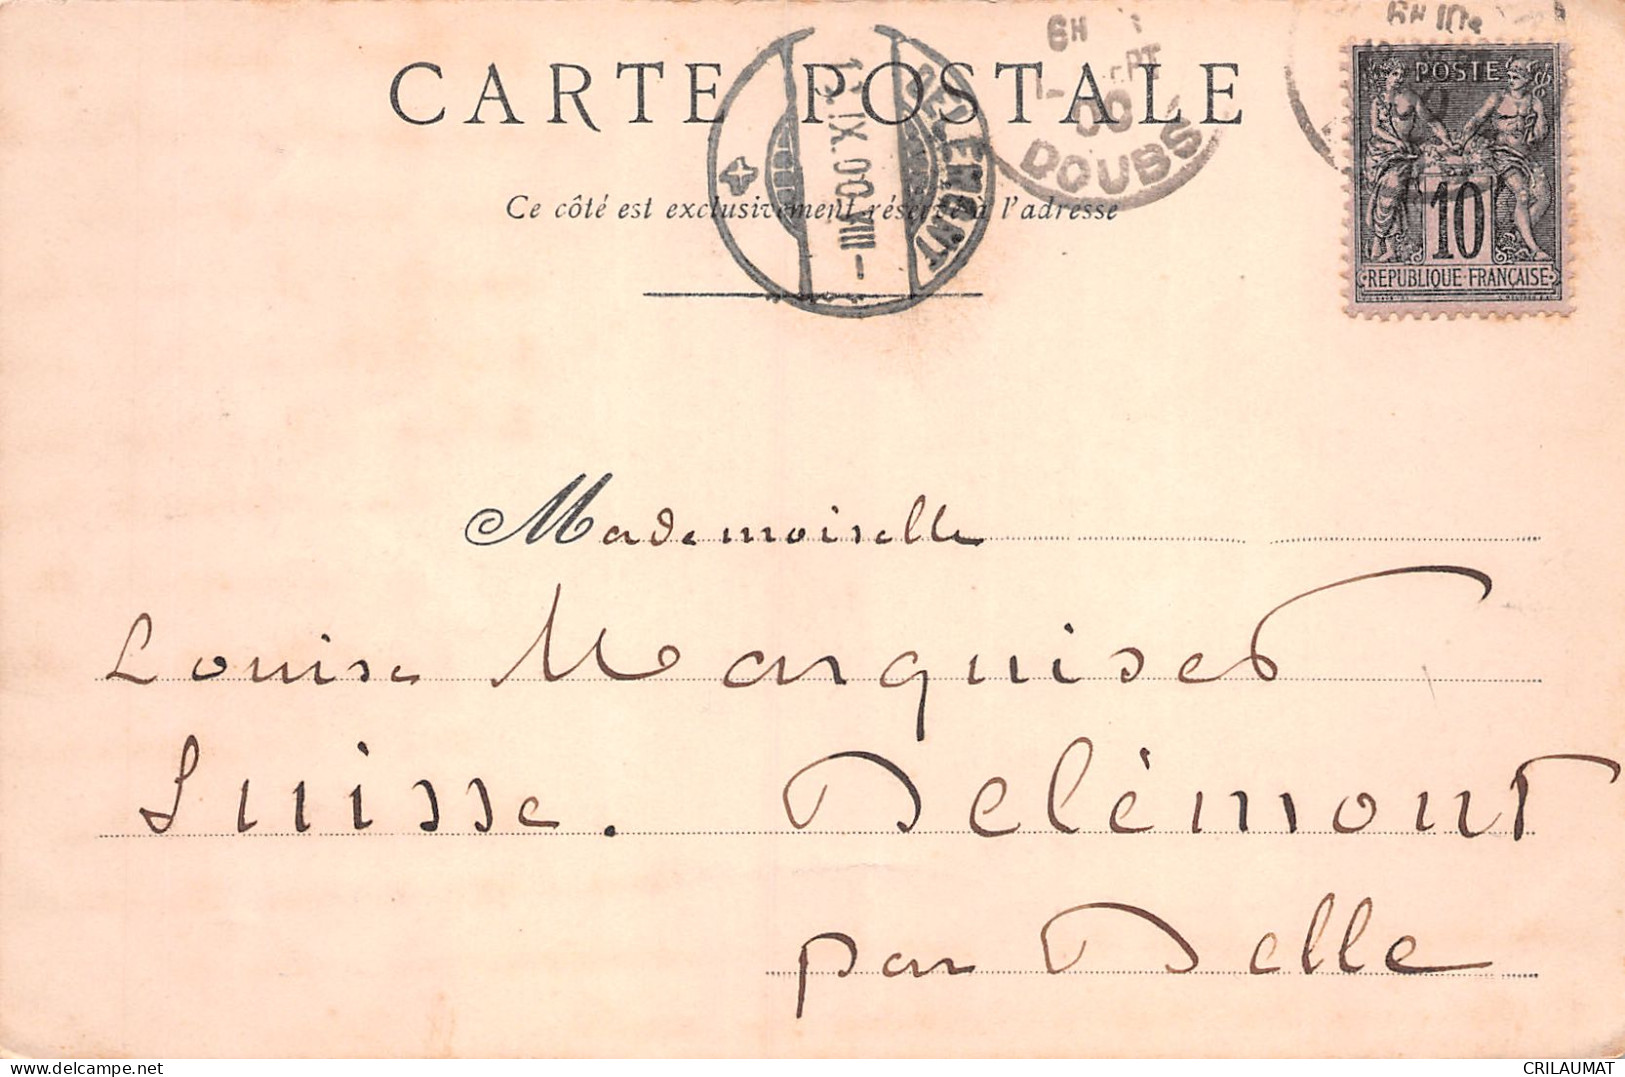 CARTE POSTALE
Ce côté est exclusivement réservé à l'adresse
DELÉMONT
IX.00.VIII–
6H
00
DOUBS
POSTE
10
REPUBLIQUE FRANÇAISE
Mademoiselle
Louise Marquiset
Suisse. Delémont
par Delle
CRILAUMAT